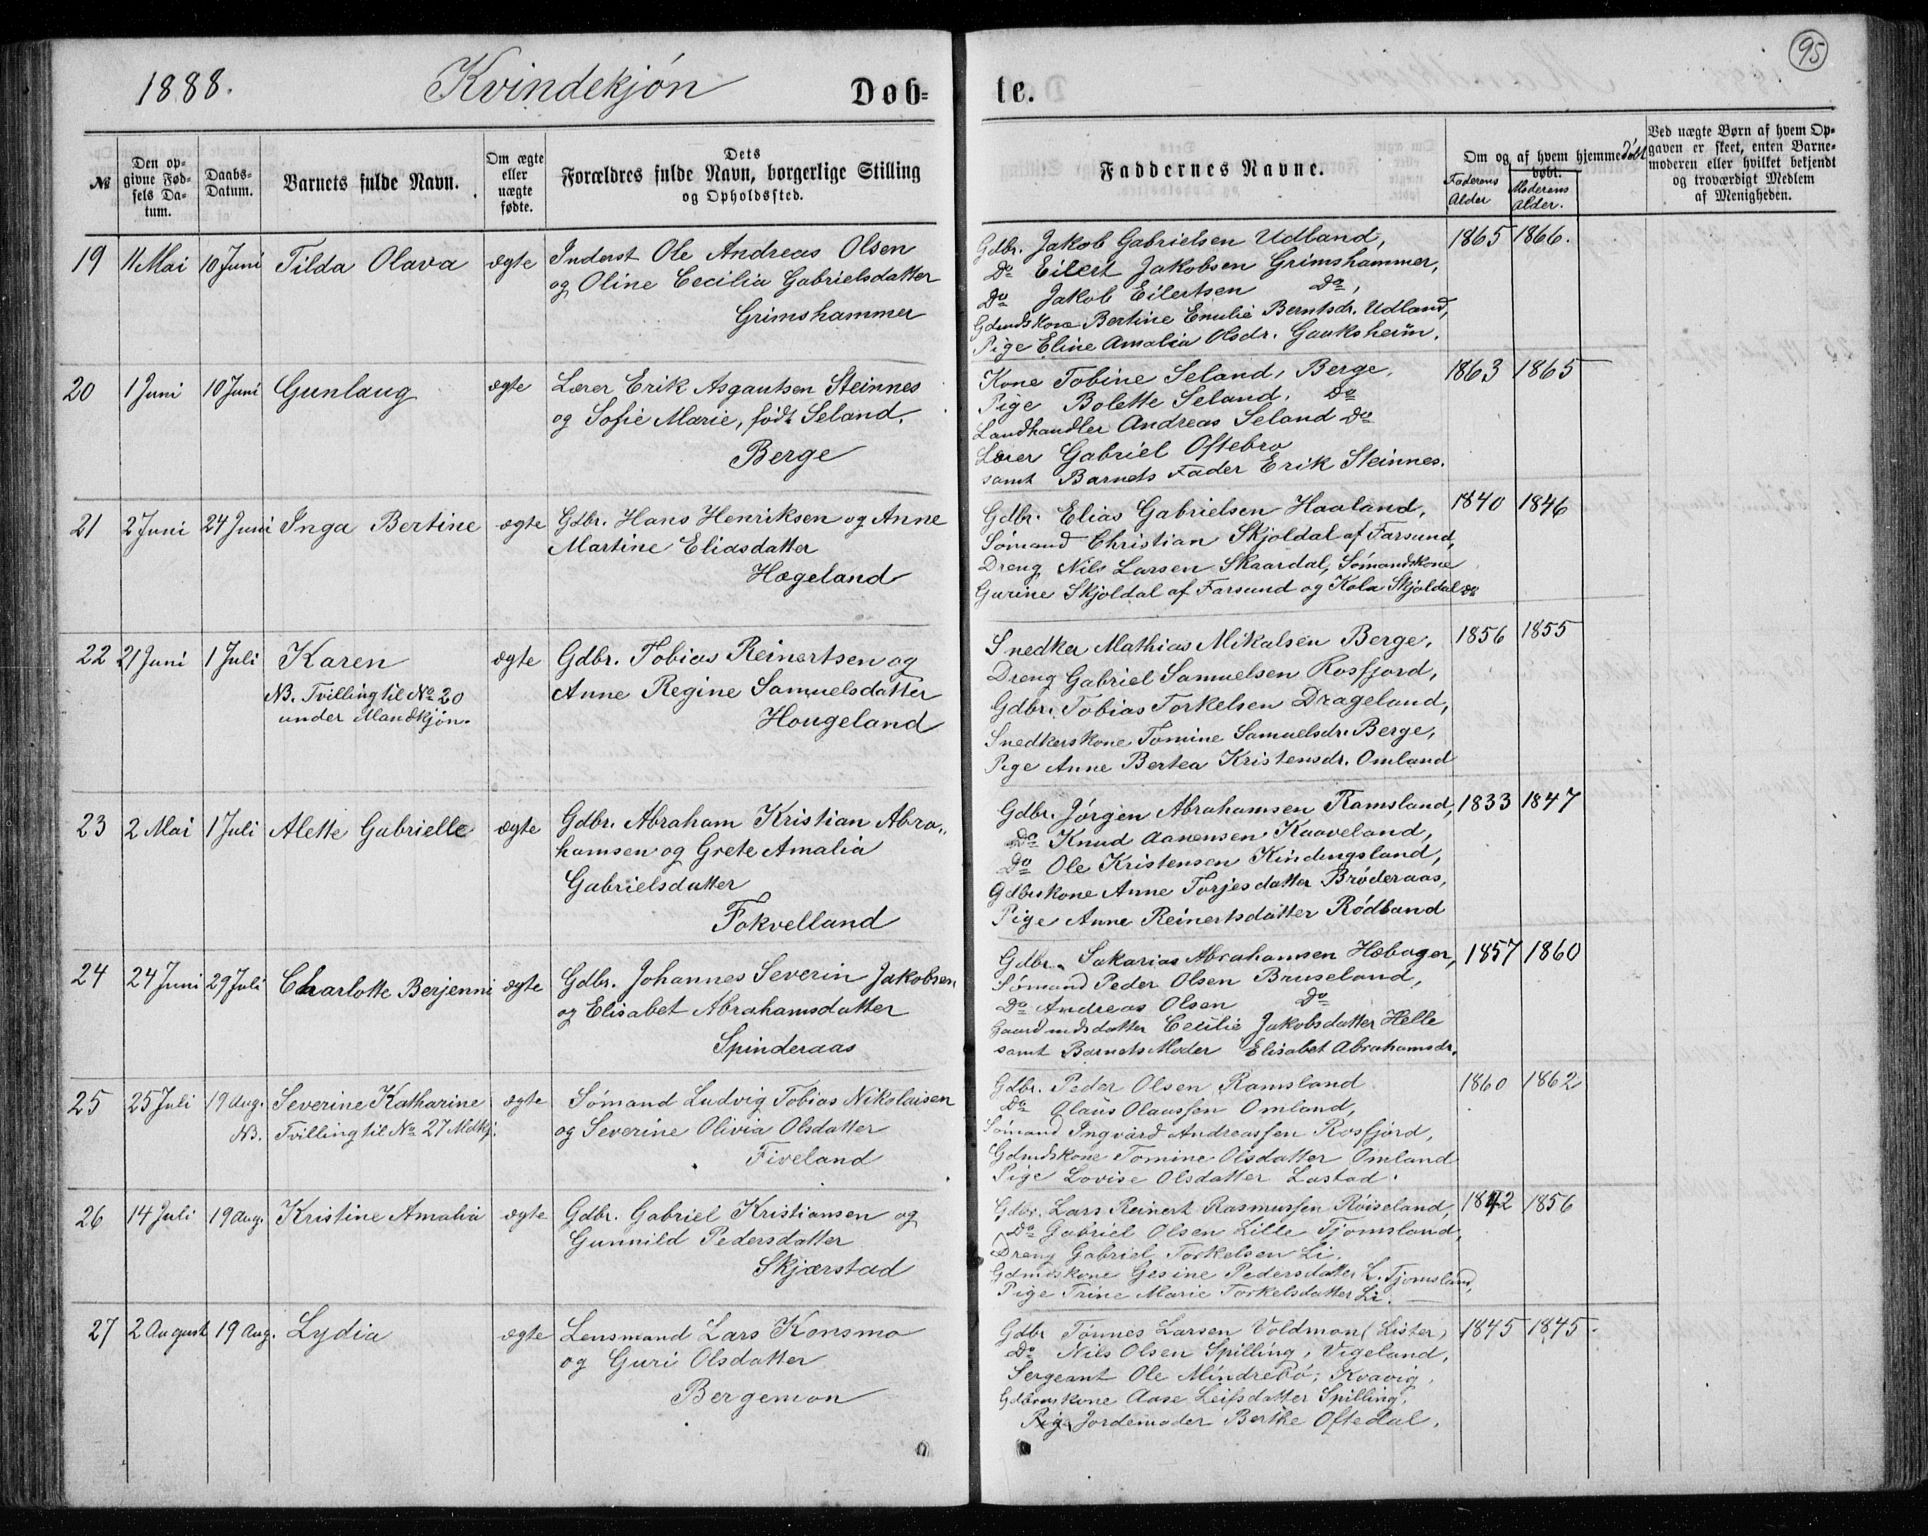 95
1888. Kvindekjøn Døb-te.
№
Den opgivne Fødsels Datum.
Daabs-Datum.
Barnets fulde Navn.
Om ægte eller uægte fødte.
Dets Forældres fulde Navn, borgerlige Stilling og Opholdssted.
Faddernes Navne.
Om og af hvem hjemmedøbt. Døbt
Faderens Alder
Moderens Alder.
Ved uægte Børn af hvem Opgaven er skeet, enten Barnemoderen eller hvilket bekjendt og troværdigt Medlem af Menigheden.
19 11 Mai 10 Juni Tilda Olava ægte
Inderst Ole Andreas Olsen
og Oline Cecilia Gabrielsdatter
Grimshammer
Gdbr. Jakob Gabrielsen Udland,
Do Eilert Jakobsen Grimshammer,
Do Jakob Eilertsen Do,
Gdmdskone Bertine Emilie Berntsdr. Udland,
Pige Eline Amalia Olsdr. Gauksheim.
1865 1866.
20 1 Juni 10 Juni Gunlaug ægte
Lærer Erik Asgautsen Steinnes
og Sofie Marie, født Seland.
Berge
Kone Tobine Seland, Berge,
Pige Bolette Seland, Do
Landhandler Andreas Seland Do
Lærer Gabriel Oftebro
samt Barnets Fader Erik Steinnes.
1863 1865
21 2 Juni 24 Juni Inga Bertine ægte
Gdbr. Hans Henriksen og Anne
Martine Eliasdatter
Hægeland
Gdbr. Elias Gabrielsen Haaland,
Sømand Christian Skjoldal af Farsund,
Dreng Nils Larsen Skaardal, Sømandskone
Gurine Skjoldal af Farsund og Kola Skjoldal do
1840 1846
22 21 Juni 1 Juli Karen ægte
NB. Tvilling til No 20
under Mandkjøn.
Gdbr. Tobias Reinertsen og
Anne Regine Samuelsdatter
Hougeland
Snedker Mathias Mikalsen Berge,
Dreng Gabriel Samuelsen Rosfjord,
Gdbr. Tobias Torkelsen Drageland,
Snedkerskone Tomine Samuelsdr. Berge,
Pige Anne Bertea Kristensdr. Omland
1856 1855
23 2 Mai 1 Juli Alette Gabrielle ægte
Gdbr. Abraham Kristian Abra-
hamsen og Grete Amalia
Gabrielsdatter
Fokvelland
Gdbr. Jørgen Abrahamsen Ramsland,
Do Knud Aanensen Kaaveland,
Do Ole Kristensen Kindingsland,
Gdbrskone Anne Torjesdatter Brøderaas,
Pige Anne Reinertsdatter Rødland
1833 1847
24 24 Juni 29 Juli Charlotte Berjenni ægte
Gdbr. Johannes Severin Jakobsen
og Elisabet Abrahamsdatter
Spinderaas
Gdbr. Sakarias Abrahamsen Hæbager,
Sømand Peder Olsen Bruseland,
Do Andreas Olsen Do
Gaardmdsdatter Cecilie Jakobsdatter Helle
samt Barnets Moder Elisabet Abrahamsdr.
1857 1860
25 25 Juli 19 Aug. Severine Katharine ægte
NB. Tvilling til No 27 Mdkj.
Sømand Ludvig Tobias Nikolaisen
og Severine Olivia Olsdatter
Fiveland
Gdbr. Peder Olsen Ramsland
Do Olaus Olaussen Omland,
Sømand Ingvard Andreassen Rosfjord,
Gdmdskone Tomine Olsdatter Omland
Pige Lovise Olsdatter Lastad.
1860 1862
26 14 Juli 19 Aug. Kristine Amalia ægte
Gdbr. Gabriel Kristiansen og
Gunnild Pedersdatter
Skjærstad
Gdbr. Lars Reinert Rasmussen Røiseland,
Do Gabriel Olsen Lille Tjomsland,
Dreng Gabriel Torkelsen Li.
Gdmdskone Gesine Pedersdatter L. Tjomsland,
Pige Trine Marie Torkelsdatter Li.
1842 1856
27 2 August 19 Aug. Lydia ægte
Lensmand Lars Konsmo
og Guri Olsdatter
Bergemon
Gdbr Tønnes Larsen Voldmon (Lister)
Do Nils Olsen Spilling, Vigeland,
Sergeant Ole Mindrebø, Kvavig,
Gdbrskone Aase Leifsdatter Spilling,
Pige Jordemoder Berthe Oftedal.
1845 1845.